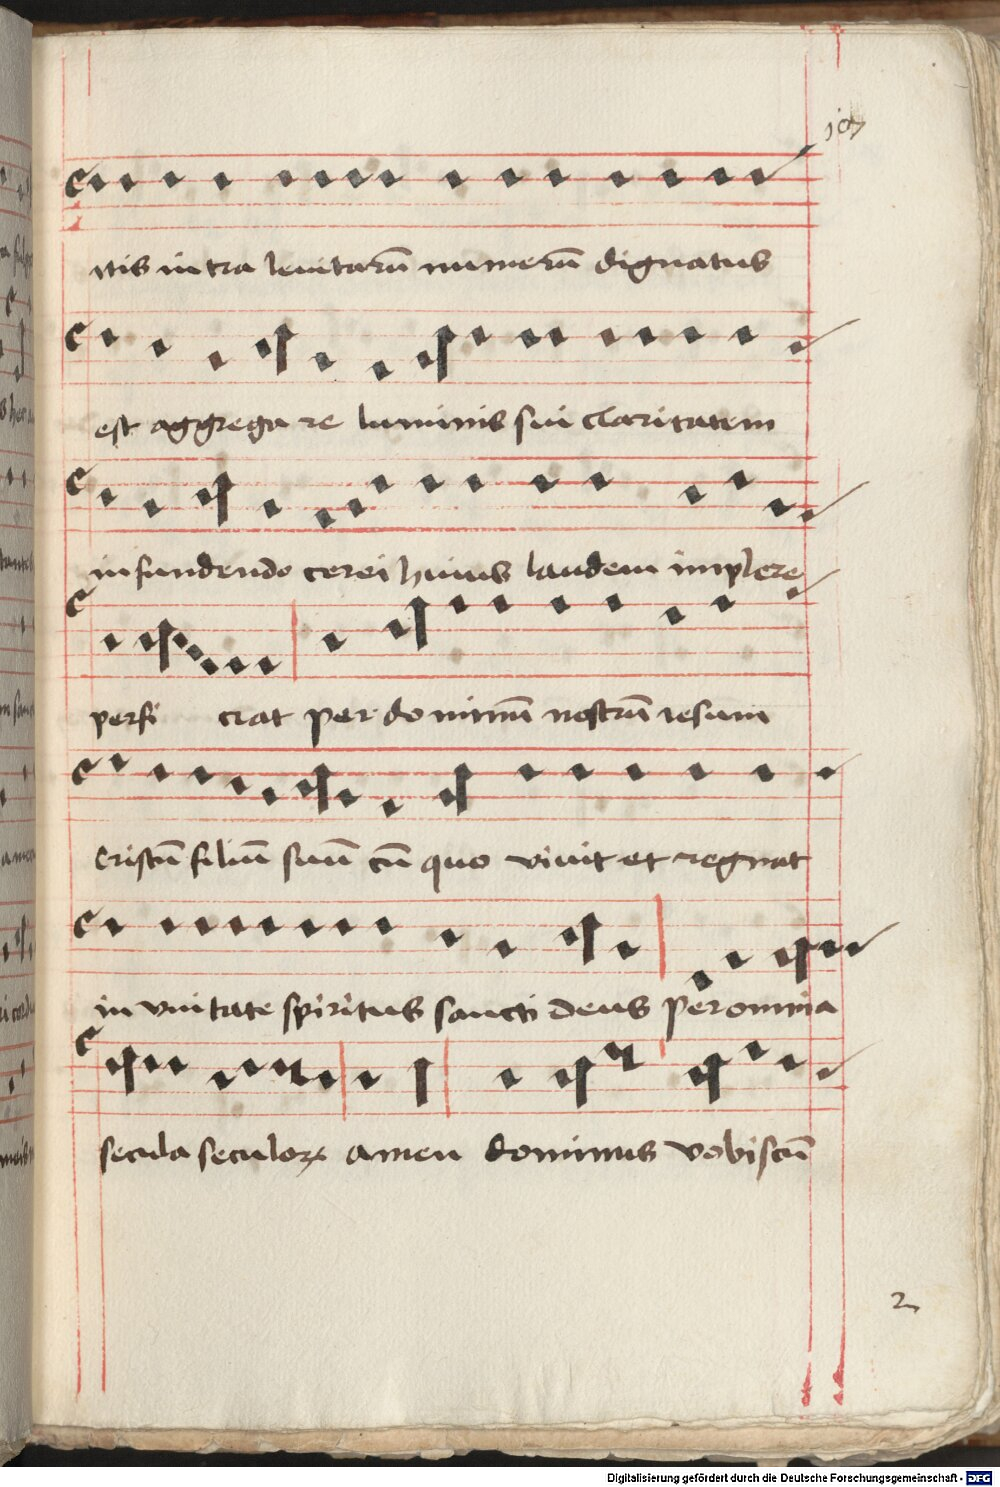 107
itis intra leuitarū numerū dignatus
est aggrega re luminis sui claritatem
infundendo cerei huius laudem implere
perfi ciat per dominū nostrū iesum
cristū filiū suū cū quo viuit et regnat
in vnitate spiritus sancti deus per omnia
secula seculoꝝ amen dominus vobiscū
2
Digitalisierung gefördert durch die Deutsche Forschungsgemeinschaft - DFG